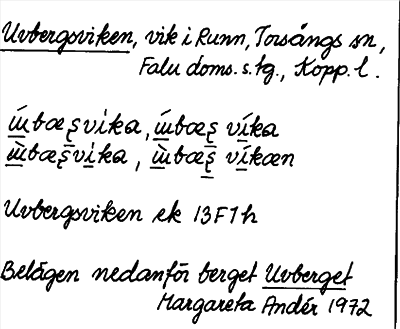 Uvbergsviken, vik i Runn, Torsångs sn,
Falu doms.s.tg., Kopp. l.
ɯ́bæʂvika, ɯ́bæʂ víka
ɯ̀bæʂvika, ɯ̀bæʂ víkæn
Uvbergsviken ek 13F1h
Belägen nedanför berget Uvberget
Margareta Andér 1972